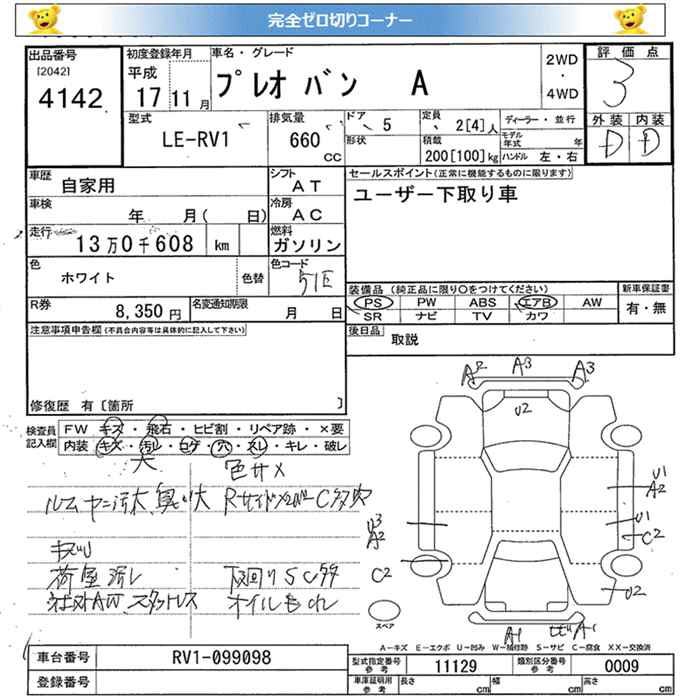 完全ゼロ切りコーナー
出品番号 初度登録年月 車名・グレード 評価点
[2042] 平成 プレオ バン A 2WD ・ 4WD 3
4142 17 11月
型式 排気量 ドア 定員 ディーラー・並行 外装 内装
LE-RV1 660 CC 5 2[4]人 モデル年式 年 D D
形状 積載 200[100]kg ハンドル 左・右
車歴 自家用 シフト AT セールスポイント(正常に機能するものに限ります)
車検 年 月( 日) 冷房 AC ユーザー下取り車
走行 13万0千608 km 燃料 ガソリン
色 ホワイト 色替 色コード 51E
装備品(純正品に限り○をつけてください) 新車保証書
R券 8,350円 名変通知期限 月 日 PS PW ABS エアB AW 有・無
SR ナビ TV カワ
注意事項申告欄(不具合内容等は具体的に記入して下さい) 後日品 取説
修復歴 有〔箇所 〕
A2 A3 A3
U2
検査員記入欄 FW キズ・飛石・ヒビ割・リペア跡・×要
内装 キズ・汚レ・コゲ・穴・スレ・キレ・破レ
大 色サメ
ルーム ヤニ汚大、臭い大
キズ
荷室汚レ 下回りSC多
社外AW、スタッドレス オイルもれ
U1
A2
U3 U1
A2 C2
C2
U2
A1 A1
スペア
A-キズ E-エクボ U-凹み W-補修跡 S-サビ C-腐食 XX-交換済
車台番号 RV1-099098 型式指定番号 参考 11129 類別区分番号 参考 0009
登録番号 車庫証明用 参考 長さ cm 幅 cm 高さ cm